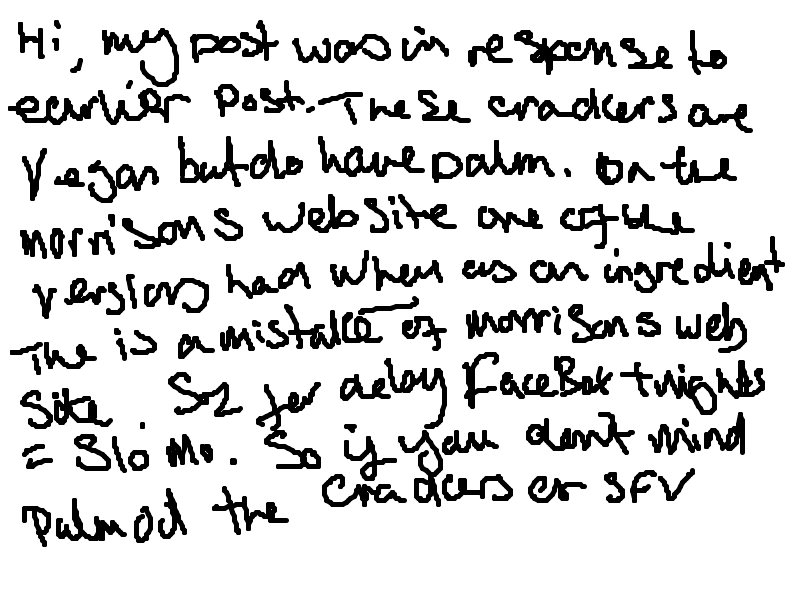 Hi, my post was in response to
earlier post. These crackers are
Vegan but do have palm. on the
morrisons website one of the
versions had when as an ingredient
The is a mistake of morrisons web
site. Soz for delay FaceBok tnights
= Slo Mo. So if you dont mind
Palmod the crackers or SFV